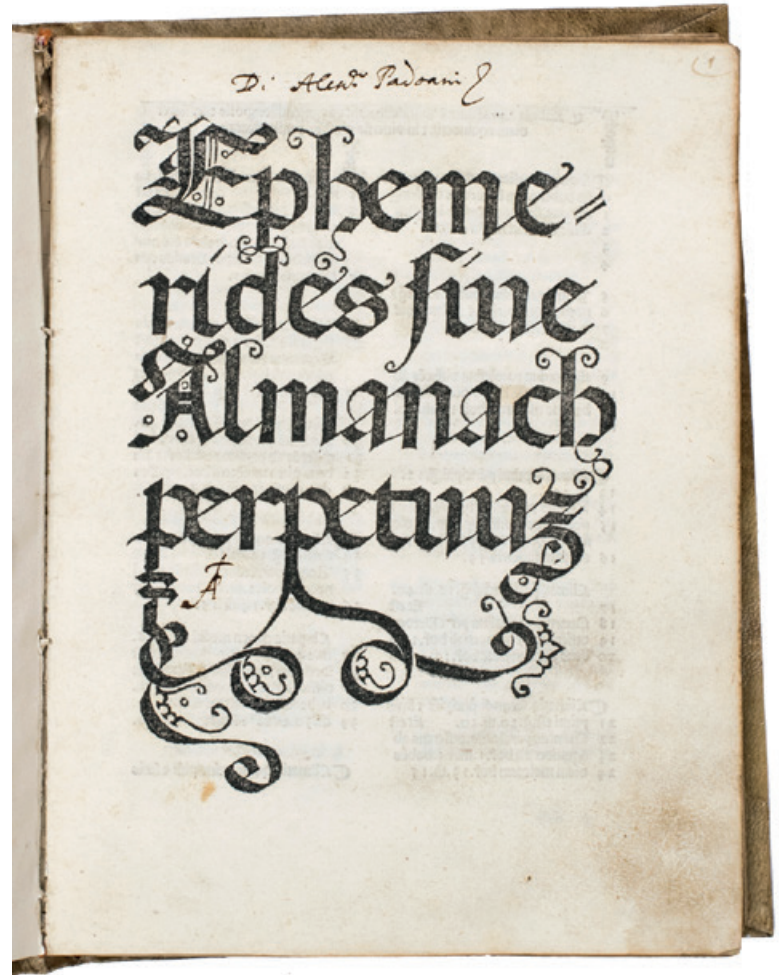 Di Alesr̃o Padoani
Epheme=
rides ſiue
Almanach
perpetuuʒ